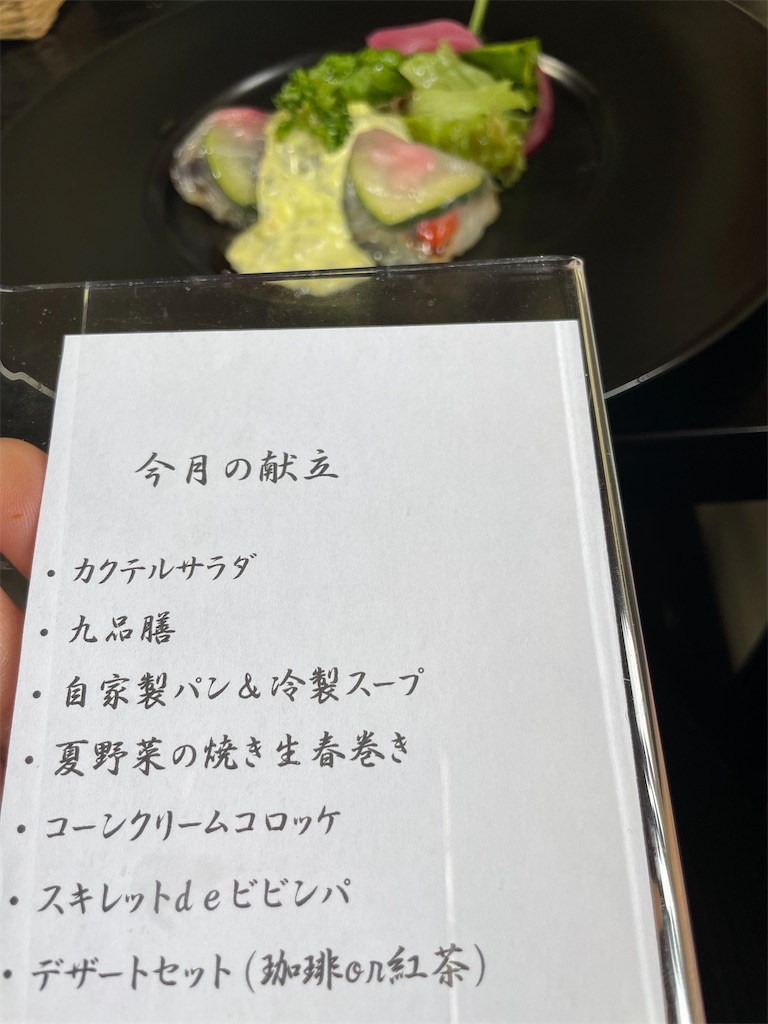 今月の献立
・カクテルサラダ
・九品膳
・自家製パン&冷製スープ
・夏野菜の焼き生春巻き
・コーンクリームコロッケ
・スキレットdeビビンパ
・デザートセット(珈琲or紅茶)